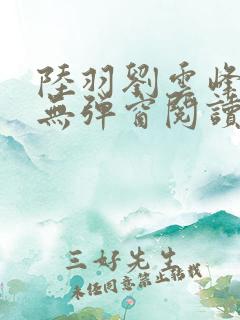 陸羽劉雲峰
無彈窗閱讀
三好先生
未經同意禁止轉載